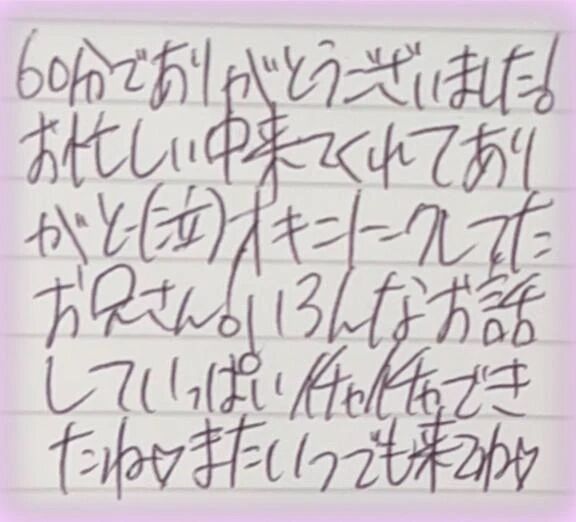 60分でありがとうございました!
お忙しい中来てくれてあり
がとー(泣)オキニトークしてた
お兄さん!いろんなお話
していっぱいイチャイチャでき
たね♡またいつでも来てね♡